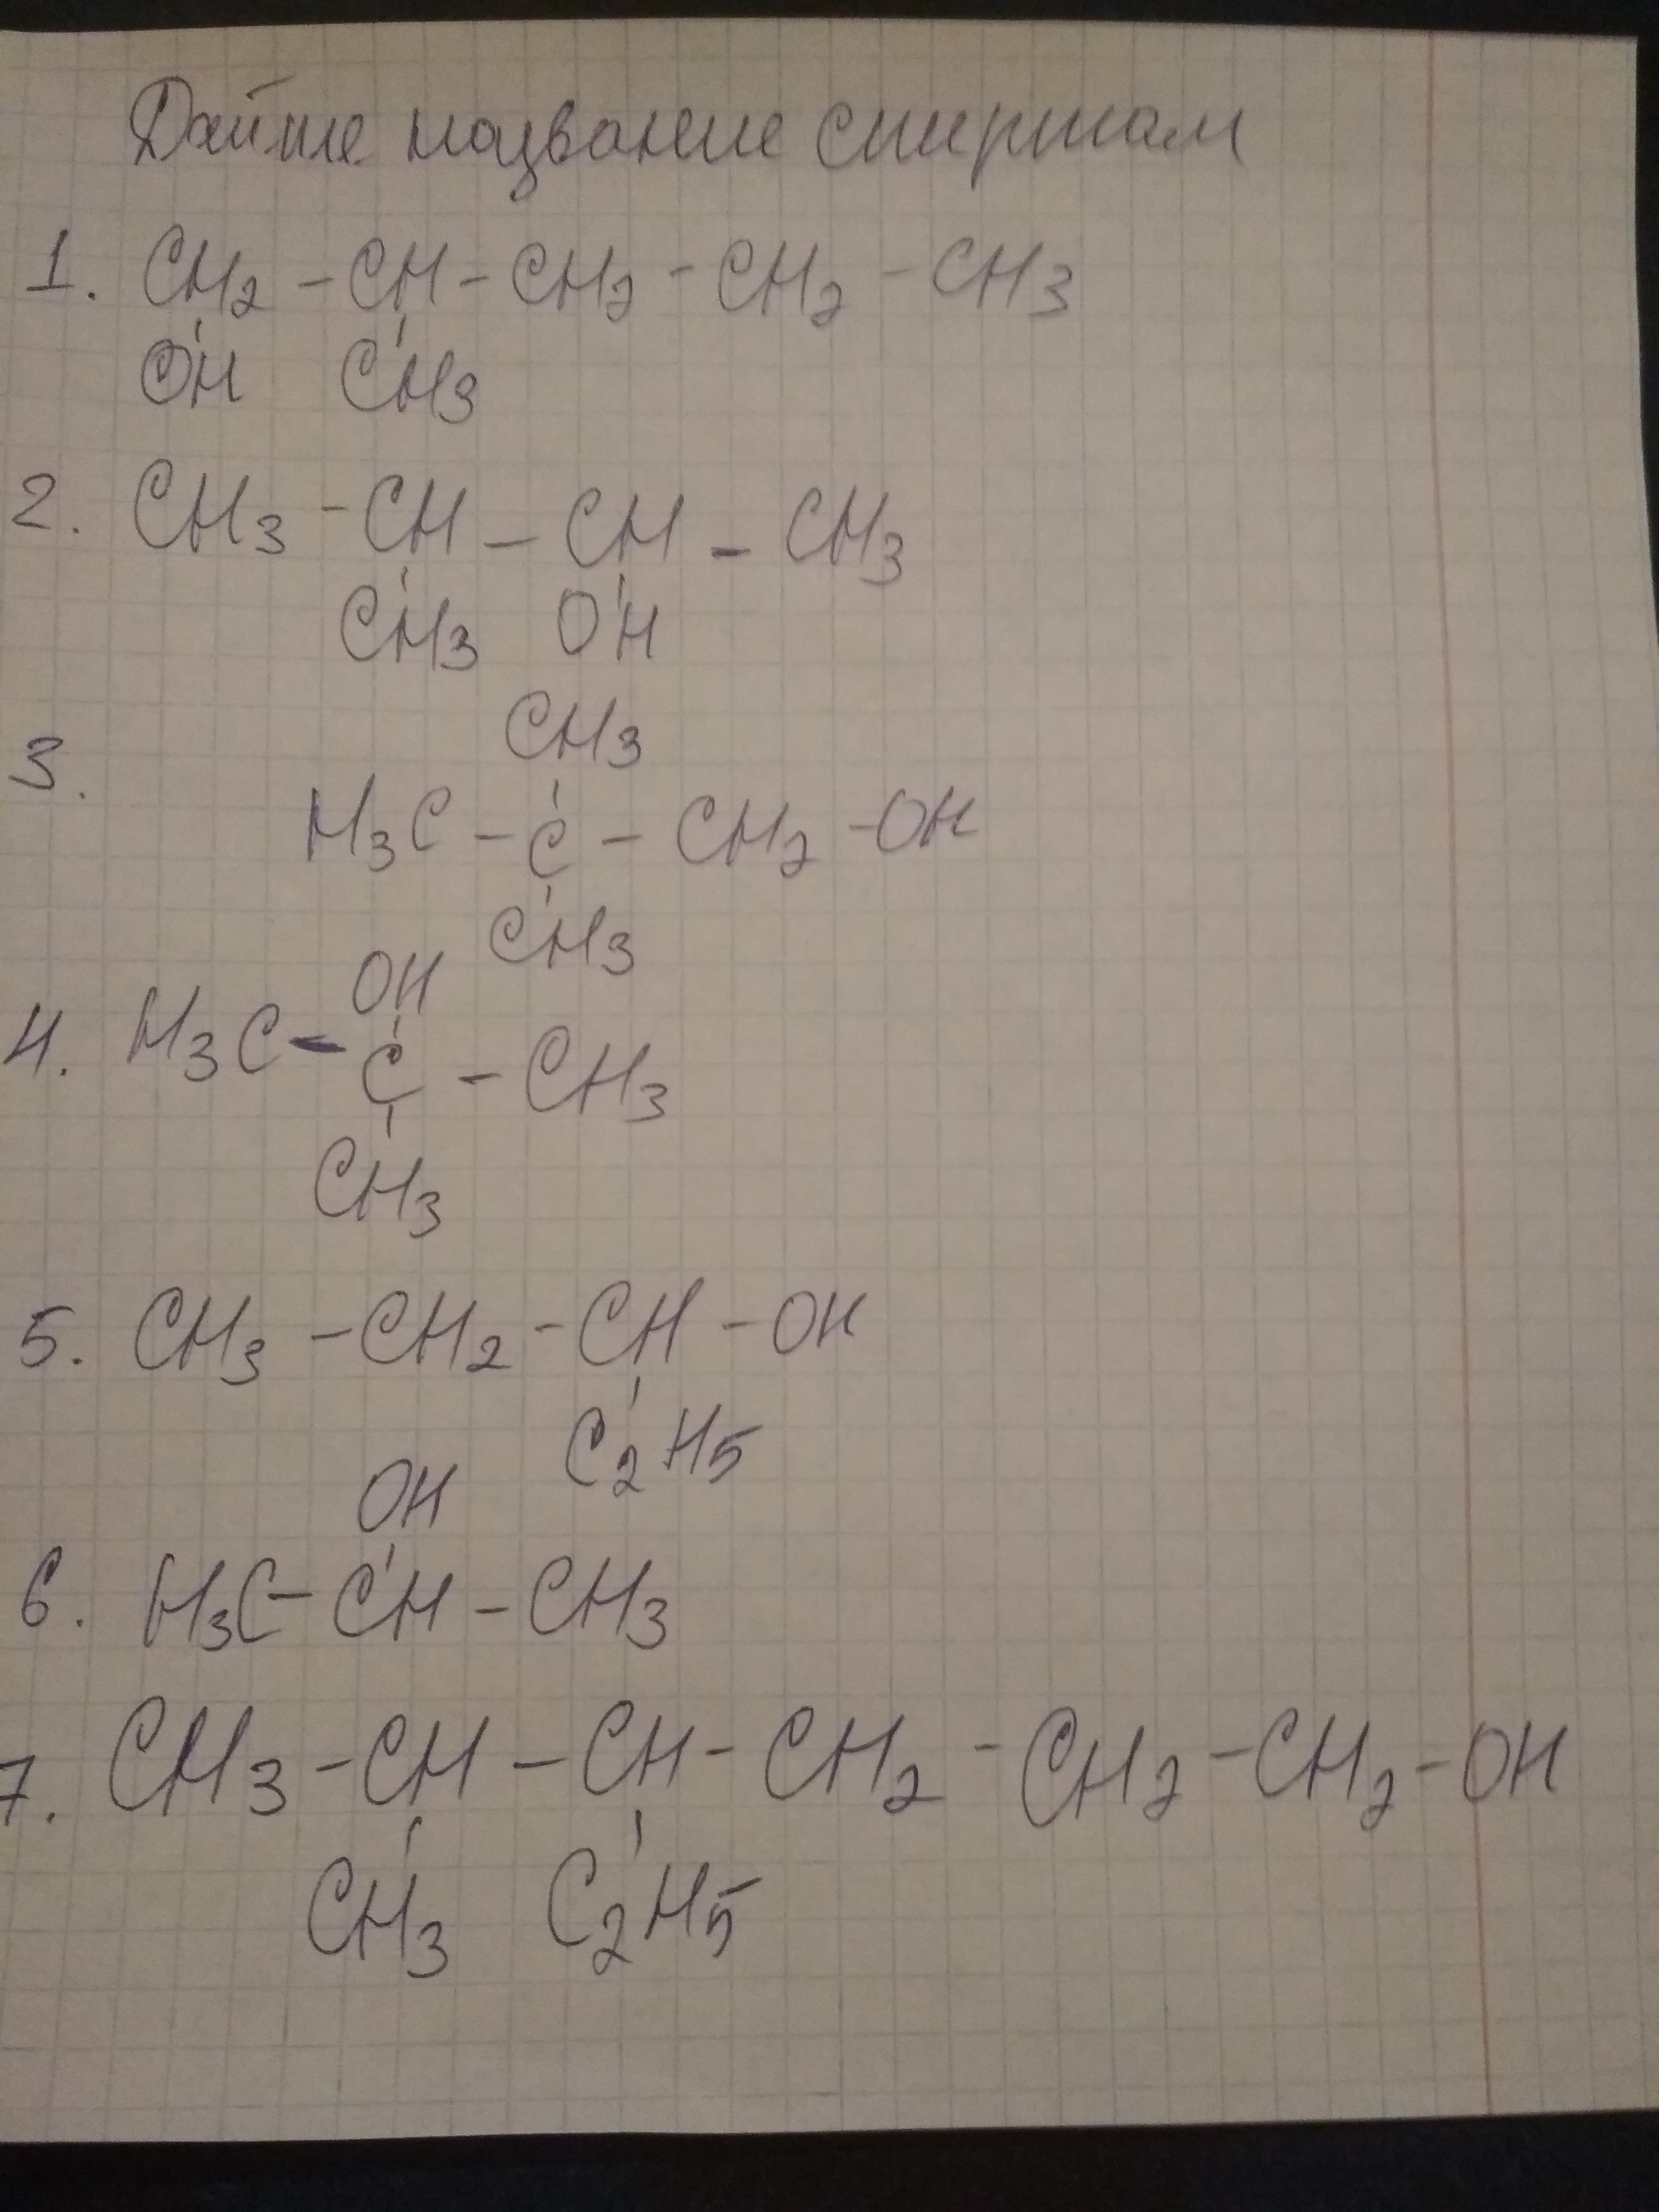 Дайте название спиртам
1. CH2 - CH - CH2 - CH2 - CH3
OH CH3
2. CH3 - CH - CH - CH3
CH3 OH
CH3
3.
H3C - C - CH2 - OH
CH3
OH
4. H3C - C - CH3
CH3
5. CH3 - CH2 - CH - OH
C2H5
OH
6. H3C - CH - CH3
7. CH3 - CH - CH - CH2 - CH2 - CH2 - OH
CH3 C2H5